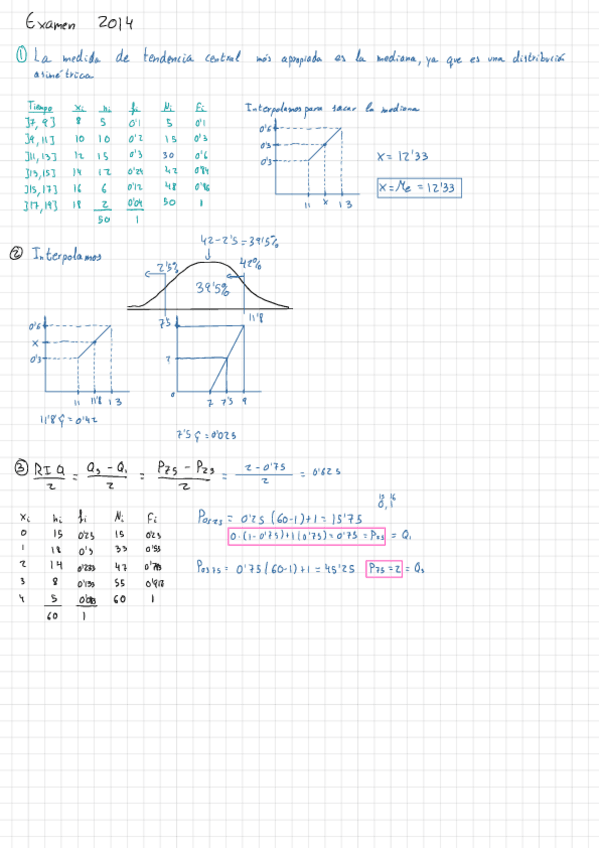 Examen 2014
① La medida de tendencia central más apropiada es la mediana, ya que es una distribución
asimétrica
Tiempo xi ni fi Ni Fi
]7, 9] 8 5 0'1 5 0'1
]9, 11] 10 10 0'2 15 0'3
]11, 13] 12 15 0'3 30 0'6
]13, 15] 14 12 0'24 42 0'84
]15, 17] 16 6 0'12 48 0'96
]17, 19] 18 2 0'04 50 1
50 1
Interpolamos para sacar la mediana
0'6
0'5
0'3
11 x 13
x = 12'33
x = Me = 12'33
② Interpolamos
42 - 2'5 = 39'5%
2'5%
42%
39'5%
7'5
11'8
0'6
x
0'3
11 11'8 13
11'8 ŷ = 0'42
?
0
7 7'5 9
7'5 ŷ = 0'025
③ RIQ / 2 = Q3 - Q1 / 2 = P75 - P25 / 2 = 2 - 0'75 / 2 = 0'625
xi ni fi Ni Fi
0 15 0'25 15 0'25
1 18 0'3 33 0'55
2 14 0'233 47 0'78
3 8 0'133 55 0'917
4 5 0'083 60 1
60 1
15 16
0, 1
P0'25 = 0'25 (60-1)+1 = 15'75
0·(1-0'75)+1(0'75) = 0'75 = P25 = Q1
P0'75 = 0'75 (60-1)+1 = 45'25 P75 = 2 = Q3